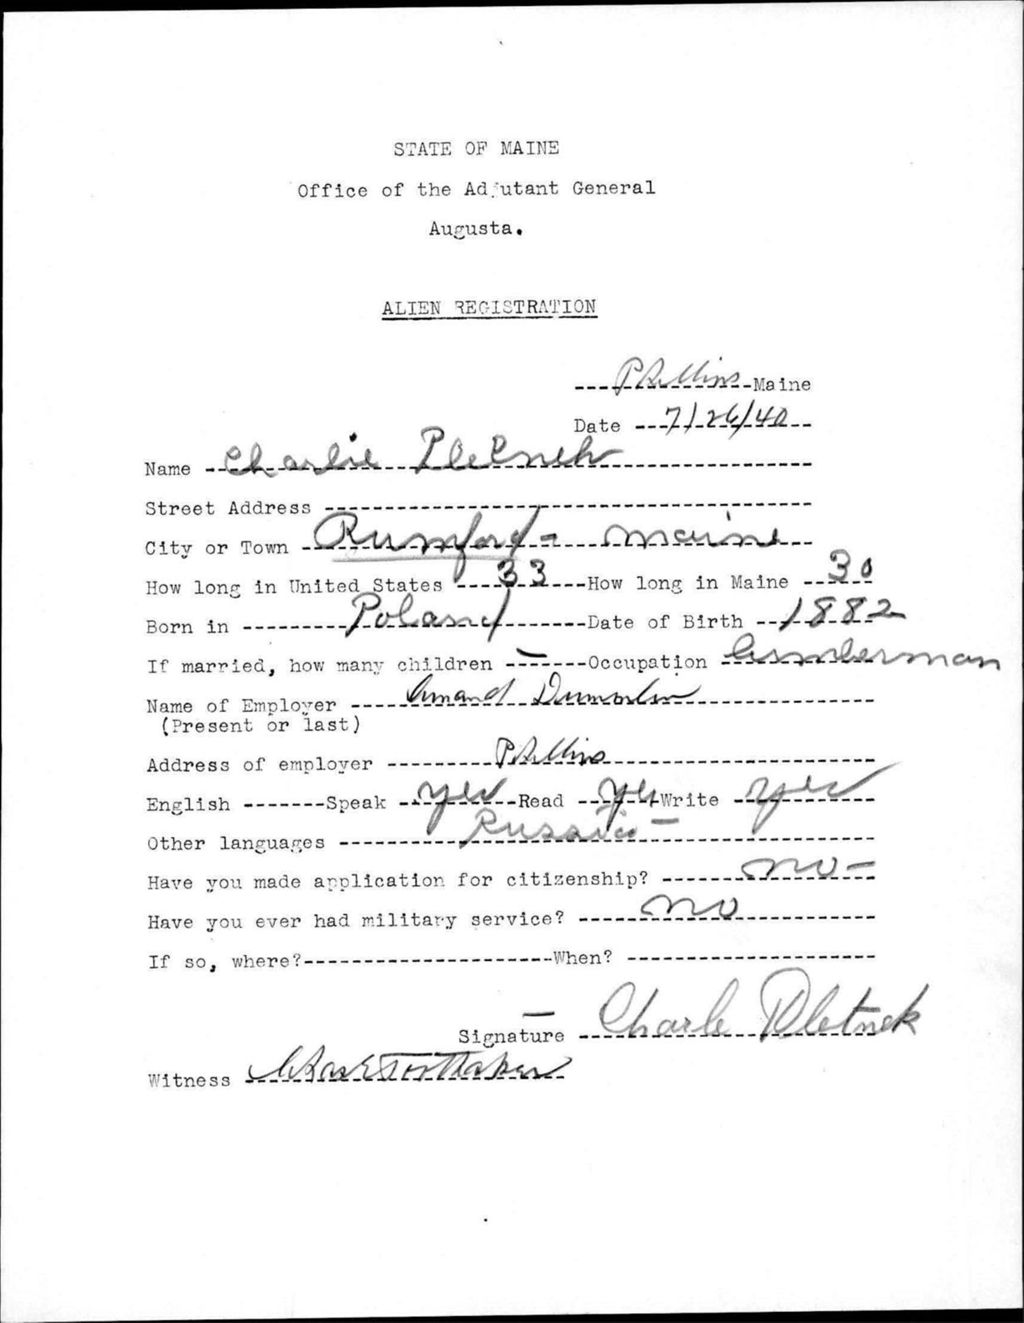 STATE OF MAINE
Office of the Adjutant General
Augusta.
ALIEN REGISTRATION
Phillips Maine
Date 7/26/40
Name Charlie Pletnek
Street Address
City or Town Rumford - Maine
How long in United States 33 How long in Maine 30
Born in Poland Date of Birth 1882
If married, how many children - Occupation
Name of Employer
(Present or last)
Address of employer Phillips
English Speak yes Read yes Write yes
Other languages
Have you made application for citizenship? no -
Have you ever had military service? no
If so, where? When?
Signature Charle Pletnek
Witness